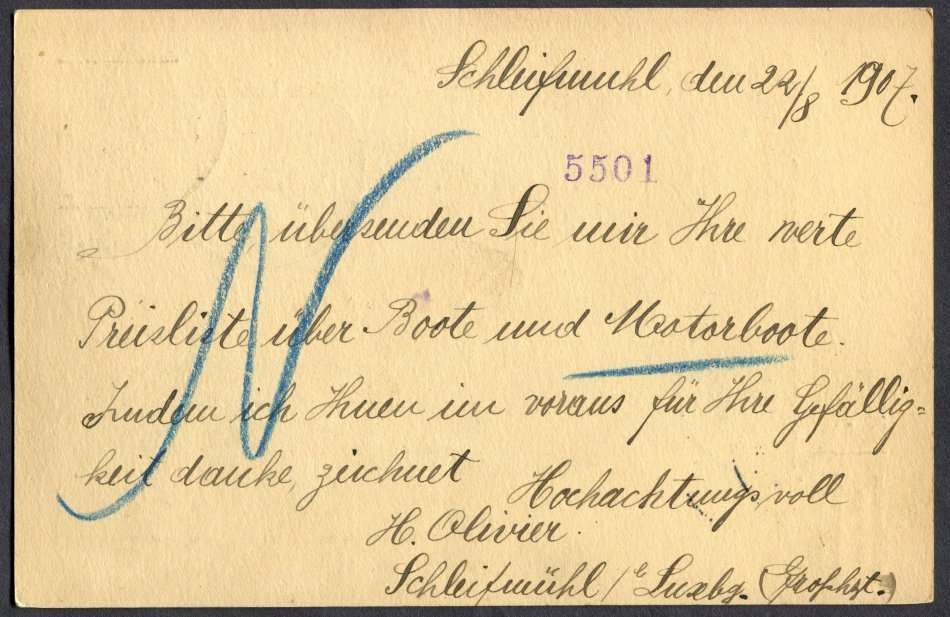 Schleifmühl, den 22/8 1907.
5501
Bitte übersenden Sie mir Ihre werte
Preisliste über Boote und Motorboote.
Indem ich Ihnen im voraus für Ihre Gefällig=
keit danke, zeichnet Hochachtungsvoll
H. Olivier.
Schleifmühl / Luxbg. (Groshzt.)
N